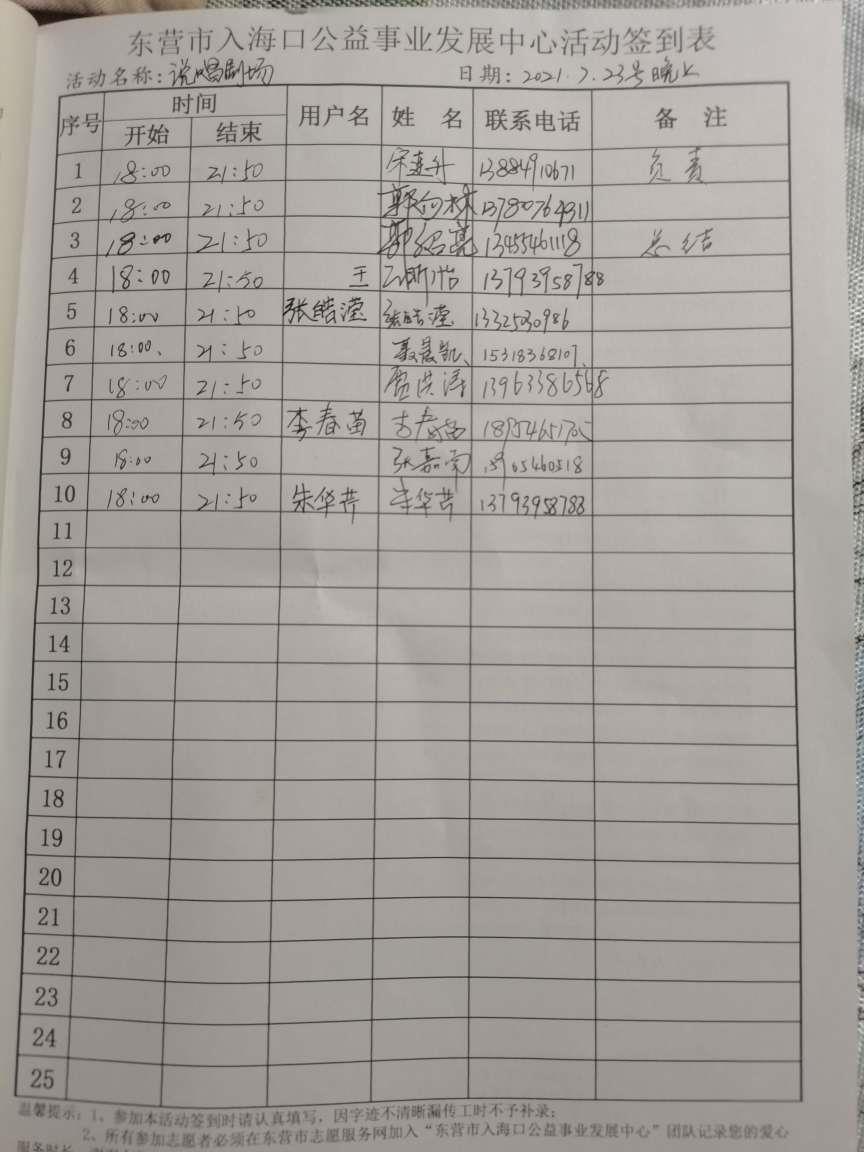 东营市入海口公益事业发展中心活动签到表
活动名称：说唱剧场 日期：2021.7.23号晚上
序号 时间 用户名 姓名 联系电话 备注
开始 结束
1 18:00 21:50 宋连升 13884910671 负责
2 18:00 21:50 郭向林 13780764311
3 18:00 21:50 郭绍亮 13455461118 总结
4 18:00 21:50 王 13793958788
5 18:00 21:50 张皓滢 张皓滢 1332530986
6 18:00、 21:50 聂晟凯、 15318368107、
7 18:00 21:50 洪涛 13963386568
8 18:00 21:50 李春苗 李春苗 18954651705
9 18:00 21:50 张嘉南 13905460518
10 18:00 21:50 朱华芹 朱华芹 13793958788
11
12
13
14
15
16
17
18
19
20
21
22
23
24
25
温馨提示：1、参加本活动签到时请认真填写，因字迹不清晰漏传工时不予补录；
2、所有参加志愿者必须在东营市志愿服务网加入“东营市入海口公益事业发展中心”团队记录您的爱心